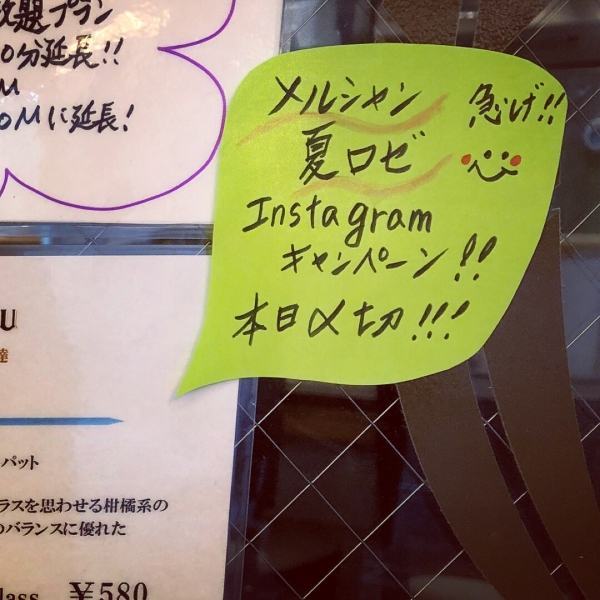 放題プラン
0分延長!!
M
0Mに延長!
メルシャン 急げ!!
夏ロゼ
Instagram
キャンペーン!!
本日〆切!!!
u
達
パット
ラスを思わせる柑橘系の
のバランスに優れた
lass ¥580